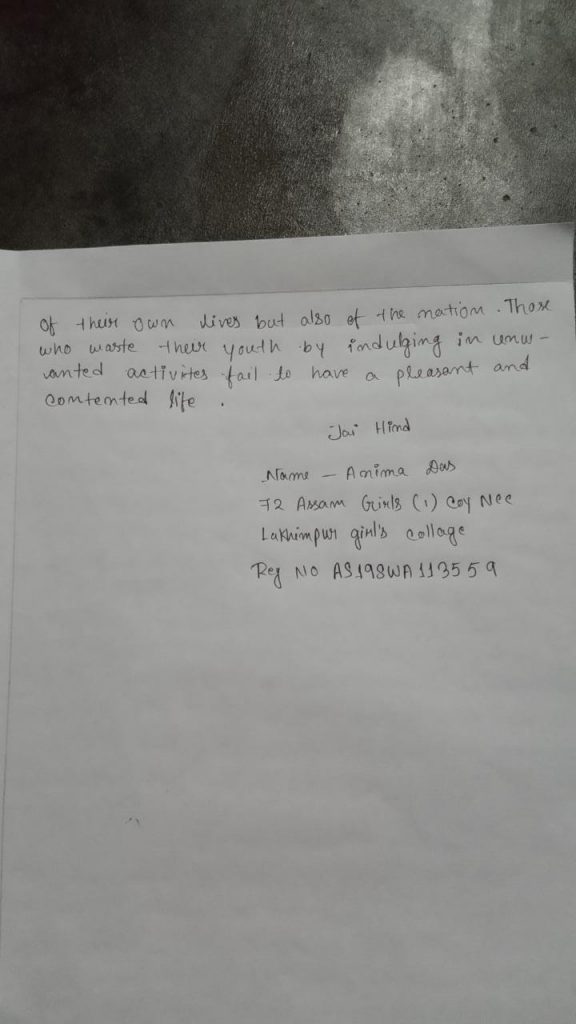 of their own lives but also of the nation. Those
who waste their youth by indulging in unw-
anted activites fail to have a pleasant and
contented life.
Jai Hind
Name - Anima Das
72 Assam Girls (1) Coy Ncc
Lakhimpur girl's collage
Reg No AS19SWA113559